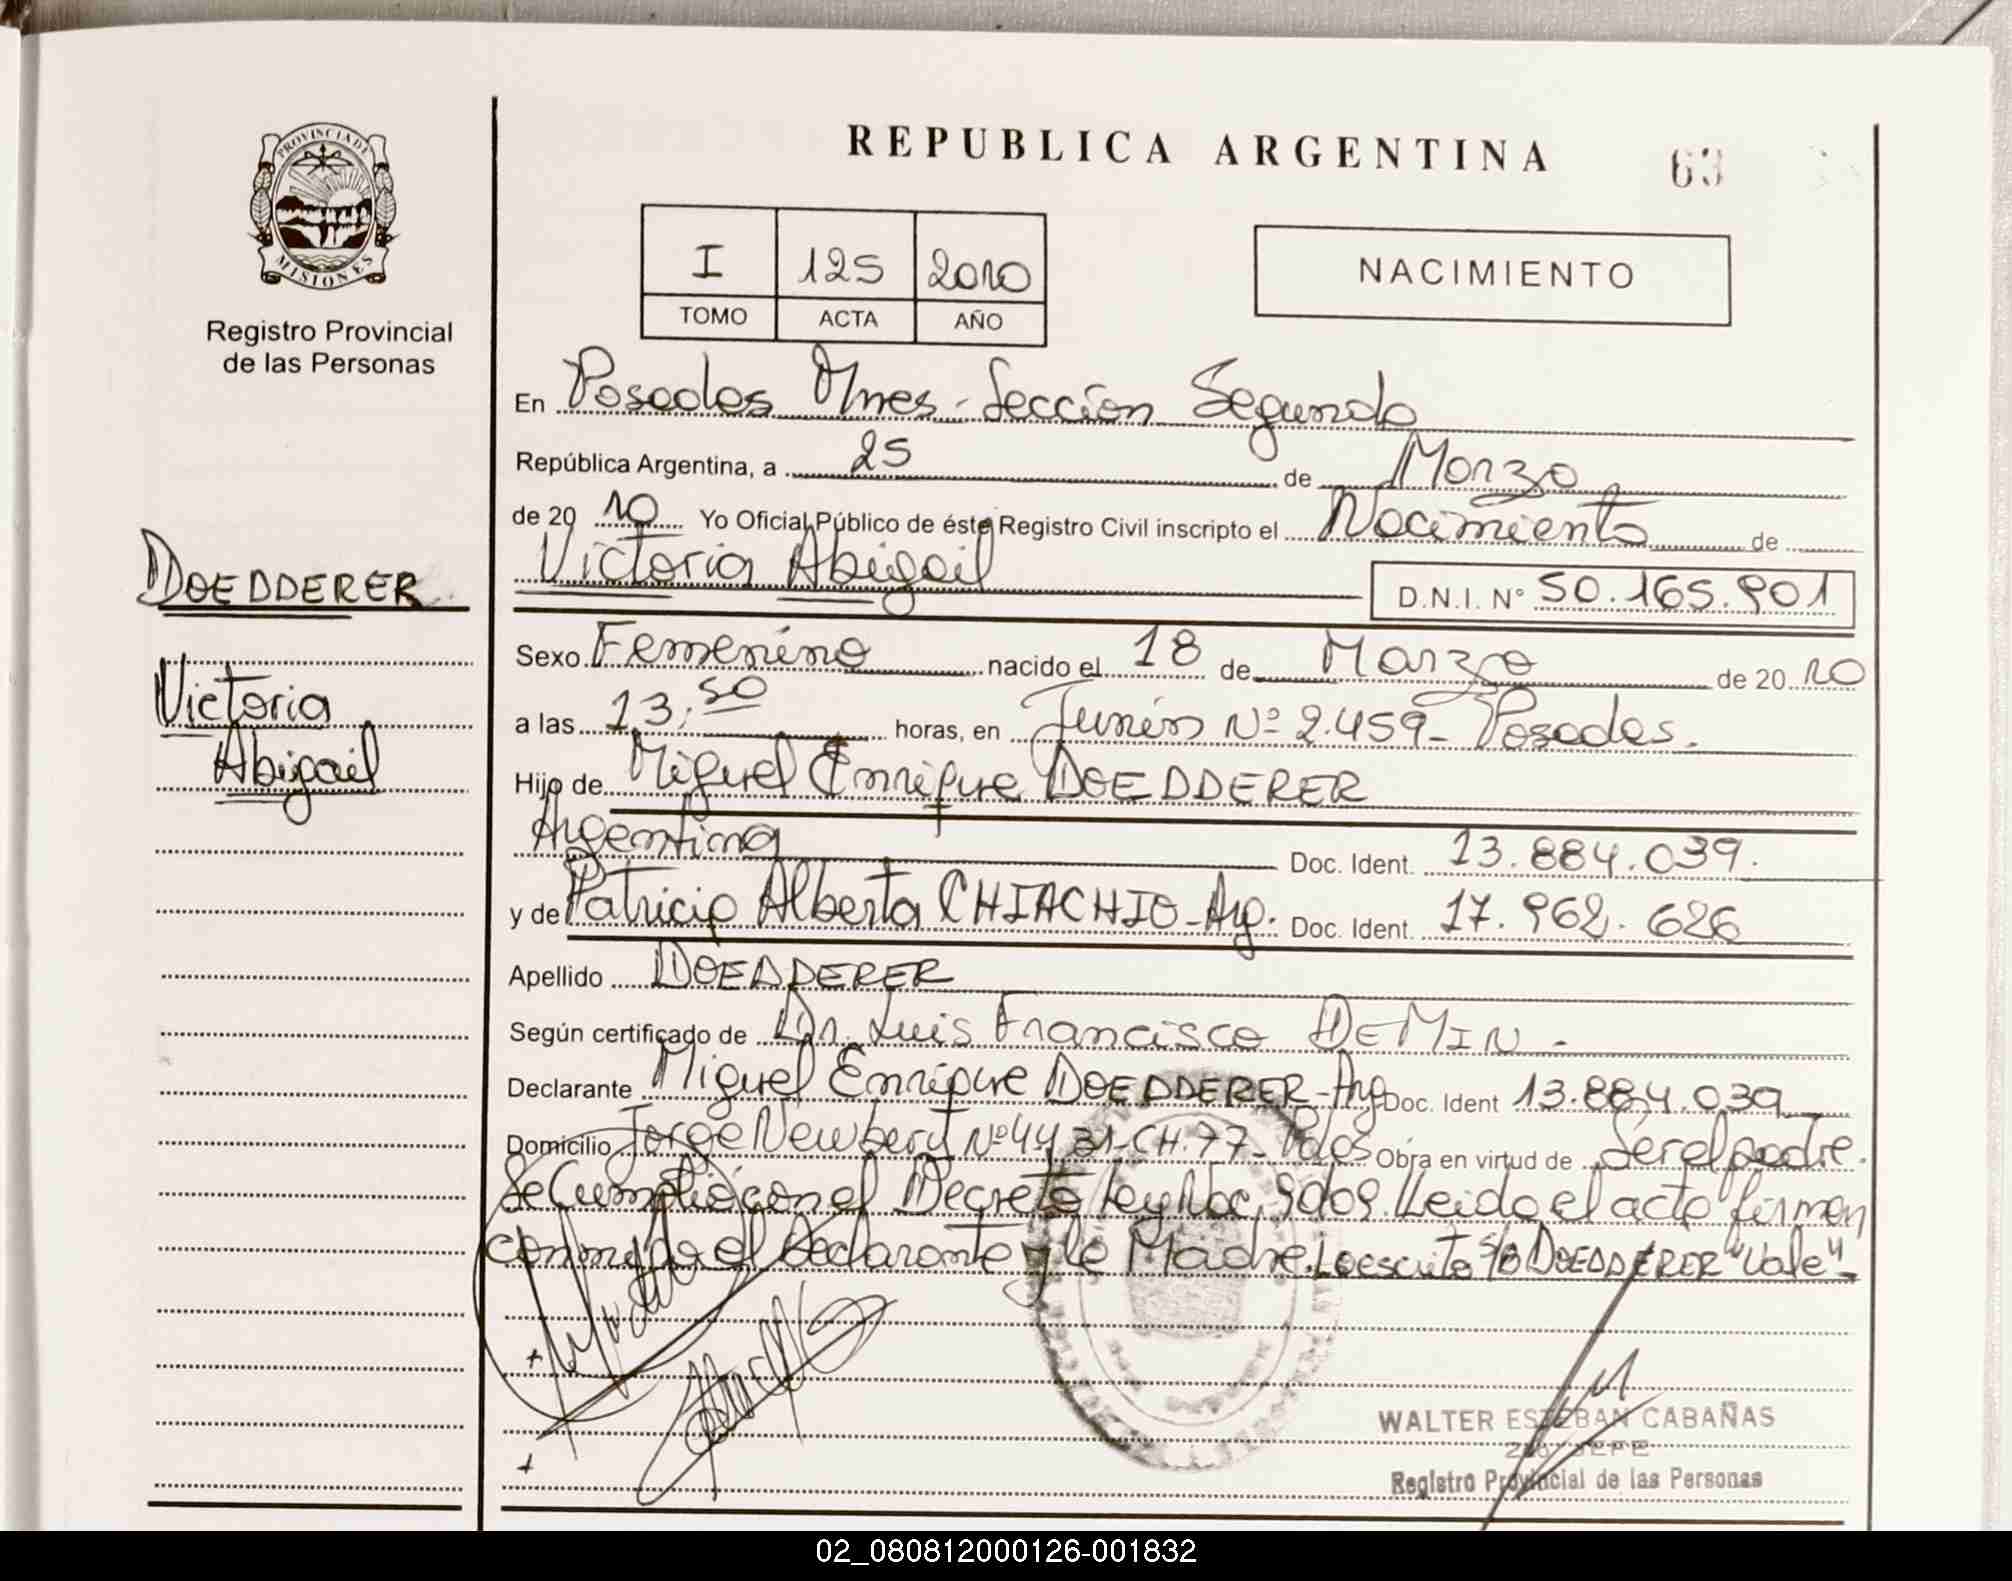 REPUBLICA ARGENTINA
63
PROVINCIA DE
MISIONES
Registro Provincial
de las Personas
I 125 2010
TOMO ACTA AÑO
NACIMIENTO
En Posadas Mnes - Sección Segunda
República Argentina, a 25 de Marzo
de 20 10 Yo Oficial Público de éste Registro Civil inscripto el Nacimiento de
Victoria Abigail D.N.I. N° 50.165.901
DOEDDERER
Victoria
Abigail
Sexo Femenino nacido el 18 de Marzo de 20 10
a las 13,50 horas, en Junín Nº 2.459 - Posadas.
Hijo de Miguel Enrique DOEDDERER
Argentina Doc. Ident. 13.884.039.
y de Patricia Alberta CHIACHIO - Arg. Doc. Ident. 17.962.626
Apellido DOEDDERER
Según certificado de Dr. Luis Francisco DEMIN -
Declarante Miguel Enrique DOEDDERER - Arg Doc. Ident 13.884.039
Domicilio Jorge Newbery Nº 4431 - CH. 77 - Pdas Obra en virtud de Ser el padre.
Se Cumplió con el Decreto Ley Nac. Leida el acta firman
conmigo el Declarante y la Madre. Lo escrito s/b DOEDDERER "Vale" -
WALTER ESTEBAN CABAÑAS
JEFE
Registro Provincial de las Personas
02_080812000126-001832